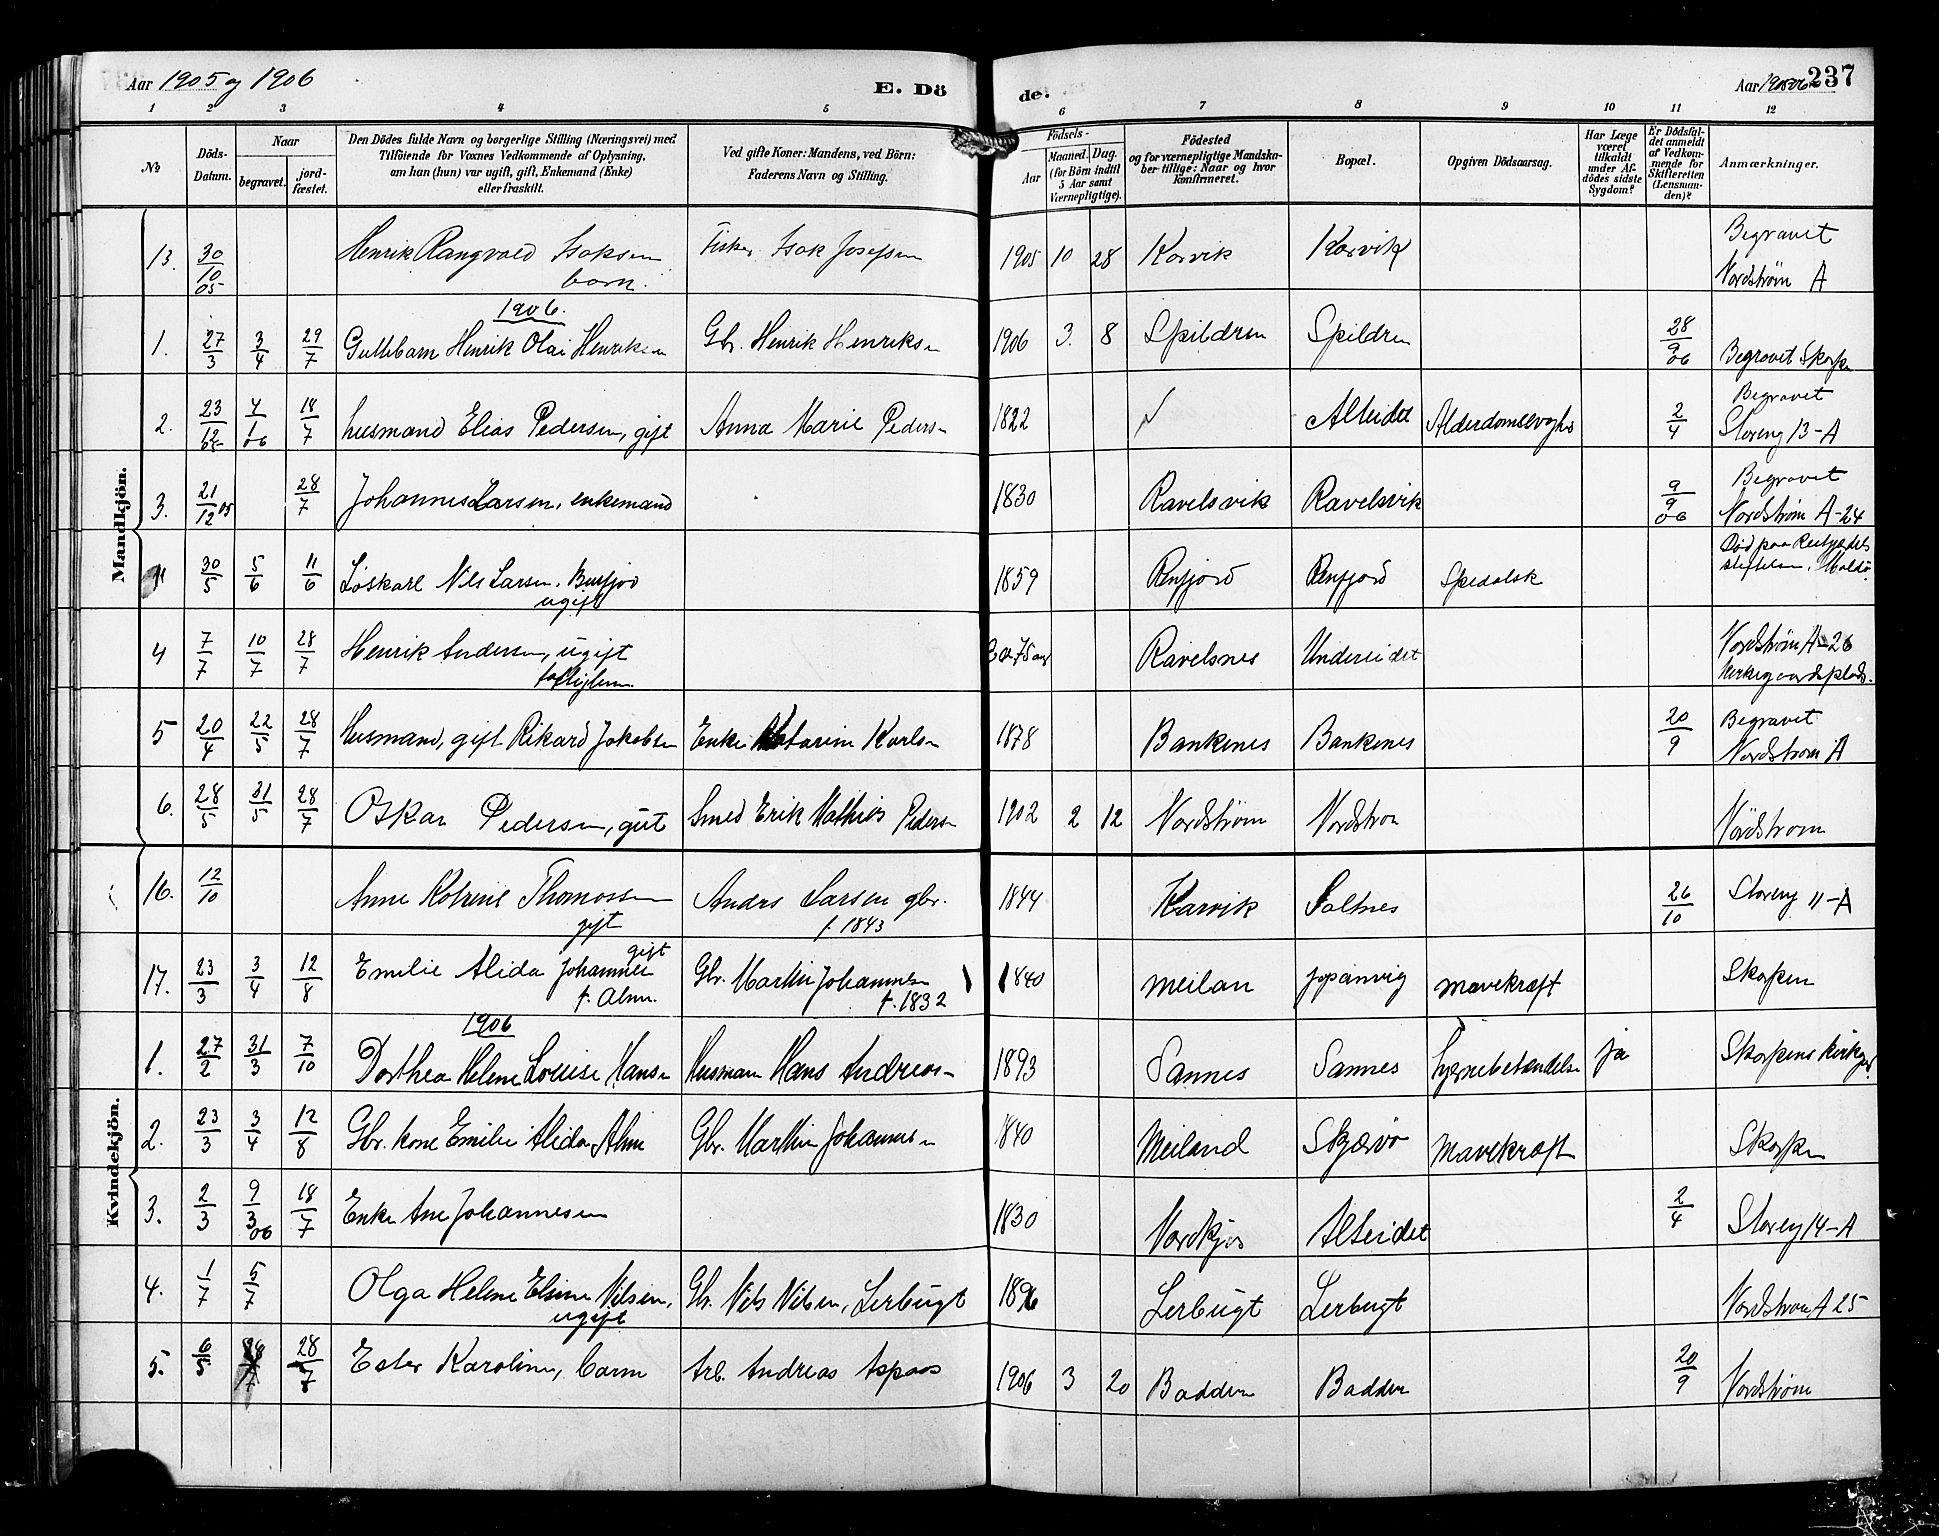 Aar 1905 og 1906
E. Dö
de.
Aar 1905-06
237
1 2 3 4 5 6 7 8 9 10 11 12
No
Döds-Datum.
Naar
begravet.
jord-fæstet.
Den Dödes fulde Navn og borgerlige Stilling (Næringsvei) med
Tilföiende for Voxnes Vedkommende af Oplysning,
om han (hun) var ugift, gift, Enkemand (Enke)
eller fraskilt.
Ved gifte Koner: Mandens, ved Börn:
Faderens Navn og Stilling.
Födsels-
Aar
Maaned. Dag.
(for Börn indtil
5 Aar samt
Værnepligtige).
Födested
og for værnepligtige Mandska-
ber tillige: Naar og hvor
konfirmeret.
Bopæl.
Opgiven Dödsaarsag.
Har Læge
været
tilkaldt
under Af-
dödes sidste
Sygdom?
Er Dödsfal-
det anmeldt
af Vedkom-
mende for
Skifteretten
(Lensman-
den)?
Anmærkninger.
Mandkjön.
13. 30/10 05 Henrik Rangvald Isaksen barn. Fisker Isak Josefsen 1905 10 28 Korvik Korvik Begravet Nordstrøm A
1906.
1. 27/3 3/4 29/7 Guttebarn Henrik Olai Henriksen Gbr. Henrik Henriksn 1906 3. 8 Spildren Spildren 28/9 06 Begravet Skorpen
2. 23/12 05 4/1 06 18/7 husmand Elias Pedersen, gift Anna Marie Pedersn 1822 Alteidet Alderdomsvaghed 2/4 Begravet Storeng 13-A
3. 21/12 05 28/7 Johannes Larsen, enkemand 1830 Ravelsvik Ravelsvik 9/9 06 Begravet Nordstrøm A-24
30/5 5/6 11/6 Løskarl Nils Larsen, Burfjord ugift 1859 Burfjord Burfjord Spedalsk Død paa Reitgjerdets stiftelse,
4 7/7 10/7 28/7 Henrik Andersen, ugift fattiglem. Ca 75 aar Ravelsnes Undereidet Nordstrøm A-26 kirkegaardsplads.
5 20/4 22/5 28/7 Husmand, gift Rikard Jakobsen Enke Katarina Karlsn 1878 Bankenes Bankenes 20/9 Begravet Nordstrøm A
6. 28/5 31/5 28/7 Oskar Pedersen, gut Smed Erik Mathias Pedersn 1902 2 12 Nordstrøm Nordstrøm Nordstrøm
Kvindekjön.
16. 12/10 Anne Katrine Thomassen gift Anders Larsen gbr. f. 1843 1844 Karvik Saltnes 26/10 Storeng 11-A
17. 23/3 3/4 12/8 Emilie Alida Johannesen gift f. Alm. Gbr. Martin Johannesen f. 1832 1840 Meilan mavekræft Skorpen
1906
1. 27/2 31/3 7/10 Dorthea Helene Louise Hansn Husman Hans Andreasn 1893 Sannes Sannes Hjernebetændelse ja Skorpens kirkegd
2. 23/3 3/4 12/8 Gbr. kone Emilie Alida Alm Gbr. Martin Johannesn 1840 Meiland Skjærvø Mavekræft Skorpen
3. 2/3 9/3 06 18/7 Enke Ane Johannesen 1830 Nordkjos Alteidet 2/4 Storeng 14-A
4. 1/7 5/7 Olga Helene Elsine Nilsen, ugift Gbr. Nils Nilsen, Lerbugt 1896 Lerbugt Lerbugt Nordstrøm A 25
5. 6/5 28/7 Ester Karoline, barn Arb. Andreas Aspaas 1906 3 20 Badderen Badderen 20/9 Nordstrøm